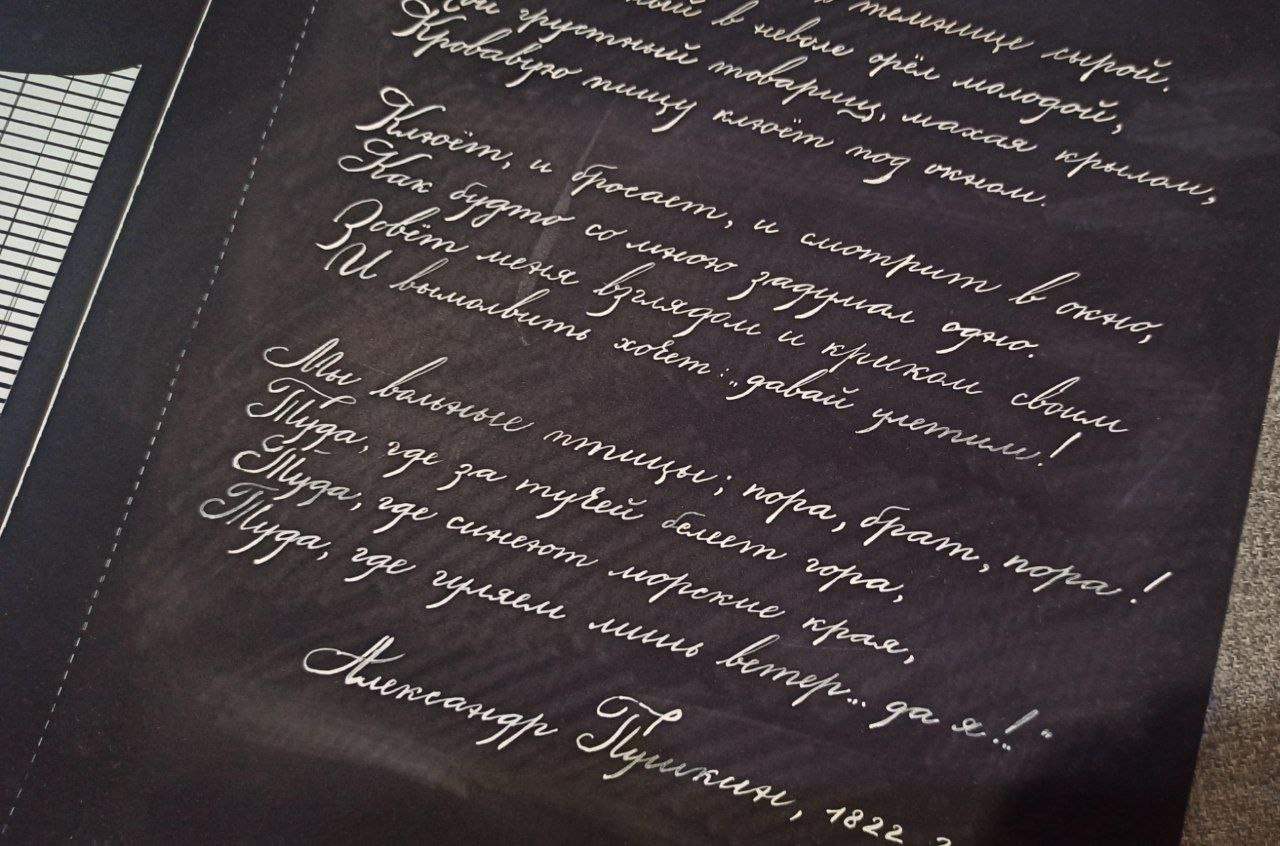 темнице сырой.
в неволе орёл молодой,
грустный товарищ, махая крылом,
Кровавую пищу клюёт под окном.
Клюёт, и бросает, и смотрит в окно,
Как будто со мною задумал одно.
Зовёт меня взглядом и криком своим
И вымолвить хочет: „давай улетим!
Мы вольные птицы; пора, брат, пора!
Туда, где за тучей белеет гора,
Туда, где синеют морские края,
Туда, где гуляем лишь ветер... да я!.."
Александр Пушкин, 1822